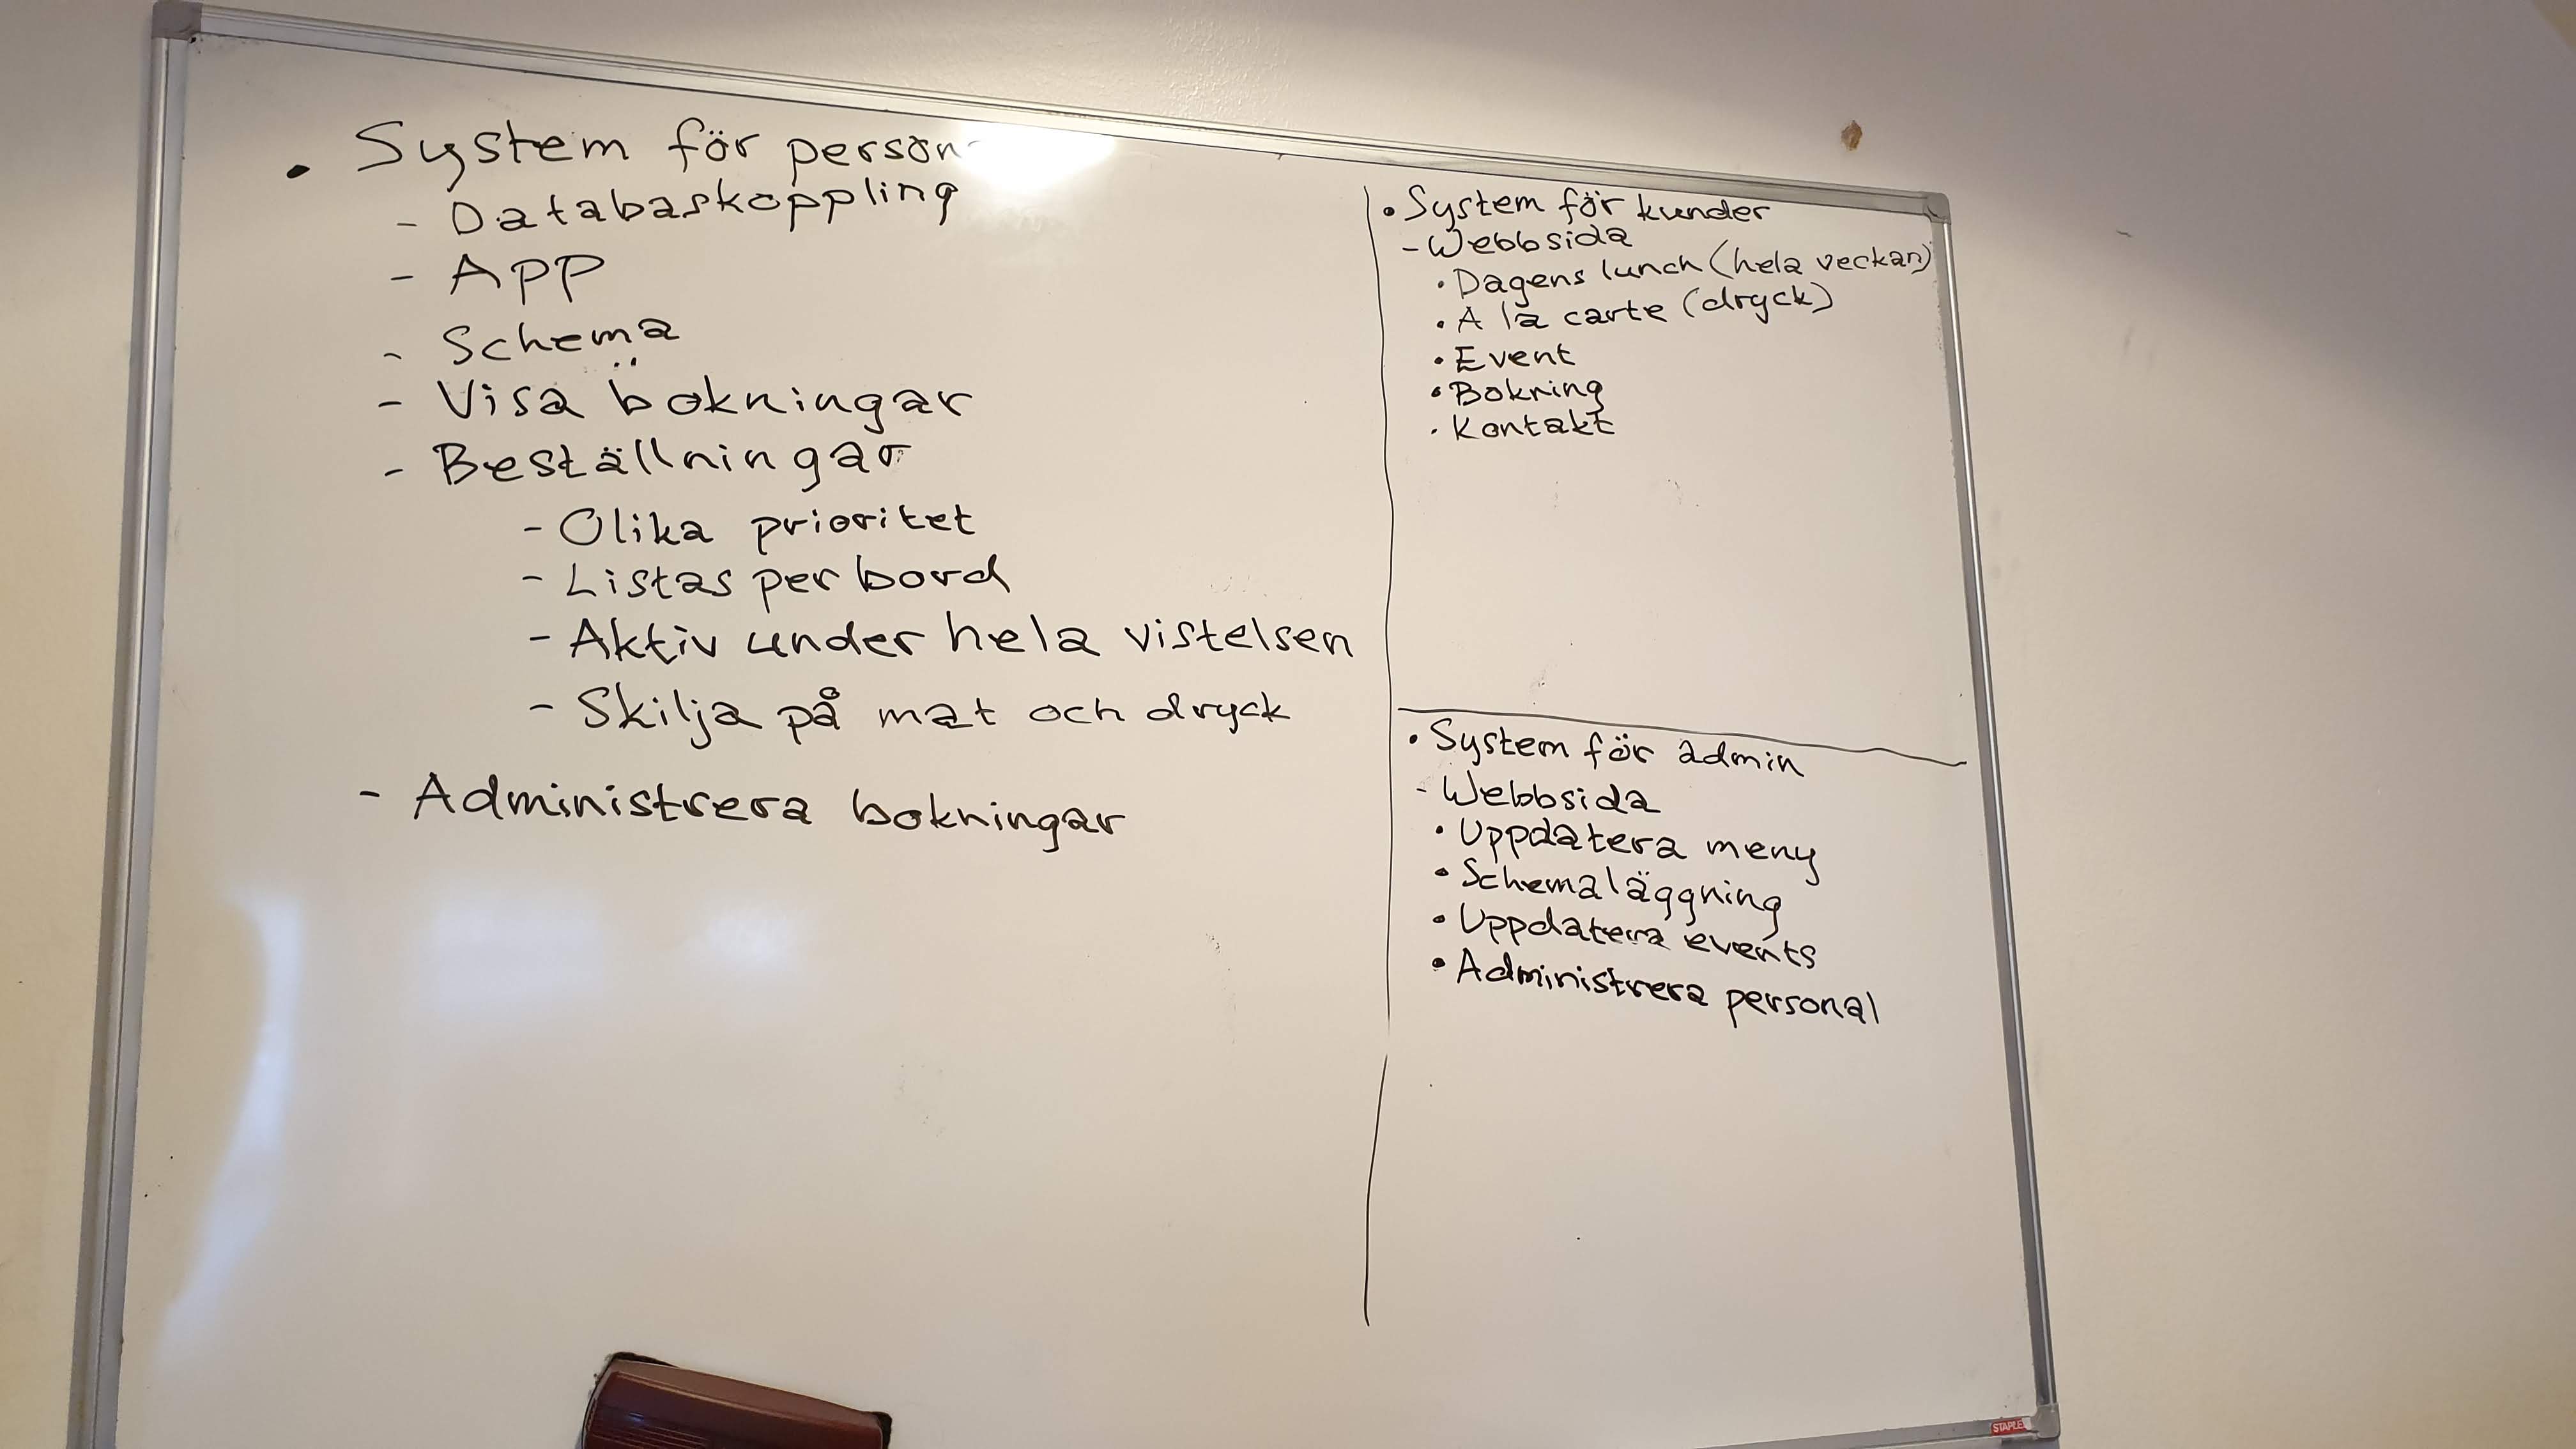 • System för person
- Databaskoppling
- App
- Schema
- Visa bokningar
- Beställningar
- Olika prioritet
- Listas per bord
- Aktiv under hela vistelsen
- Skilja på mat och dryck
- Administrera bokningar
• System för kunder
- Webbsida
• Dagens lunch (hela veckan)
• A la carte (dryck)
• Event
• Bokning
• Kontakt
• System för admin
- Webbsida
• Uppdatera meny
• Schemaläggning
• Uppdatera events
• Administrera personal
STAPLES